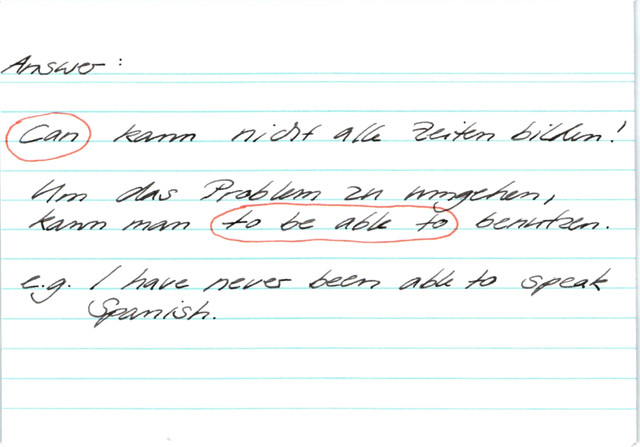 Answer:
Can kann nicht alle Zeiten bilden!
Um das Problem zu umgehen,
kann man to be able to benutzen.
e.g. I have never been able to speak
Spanish.